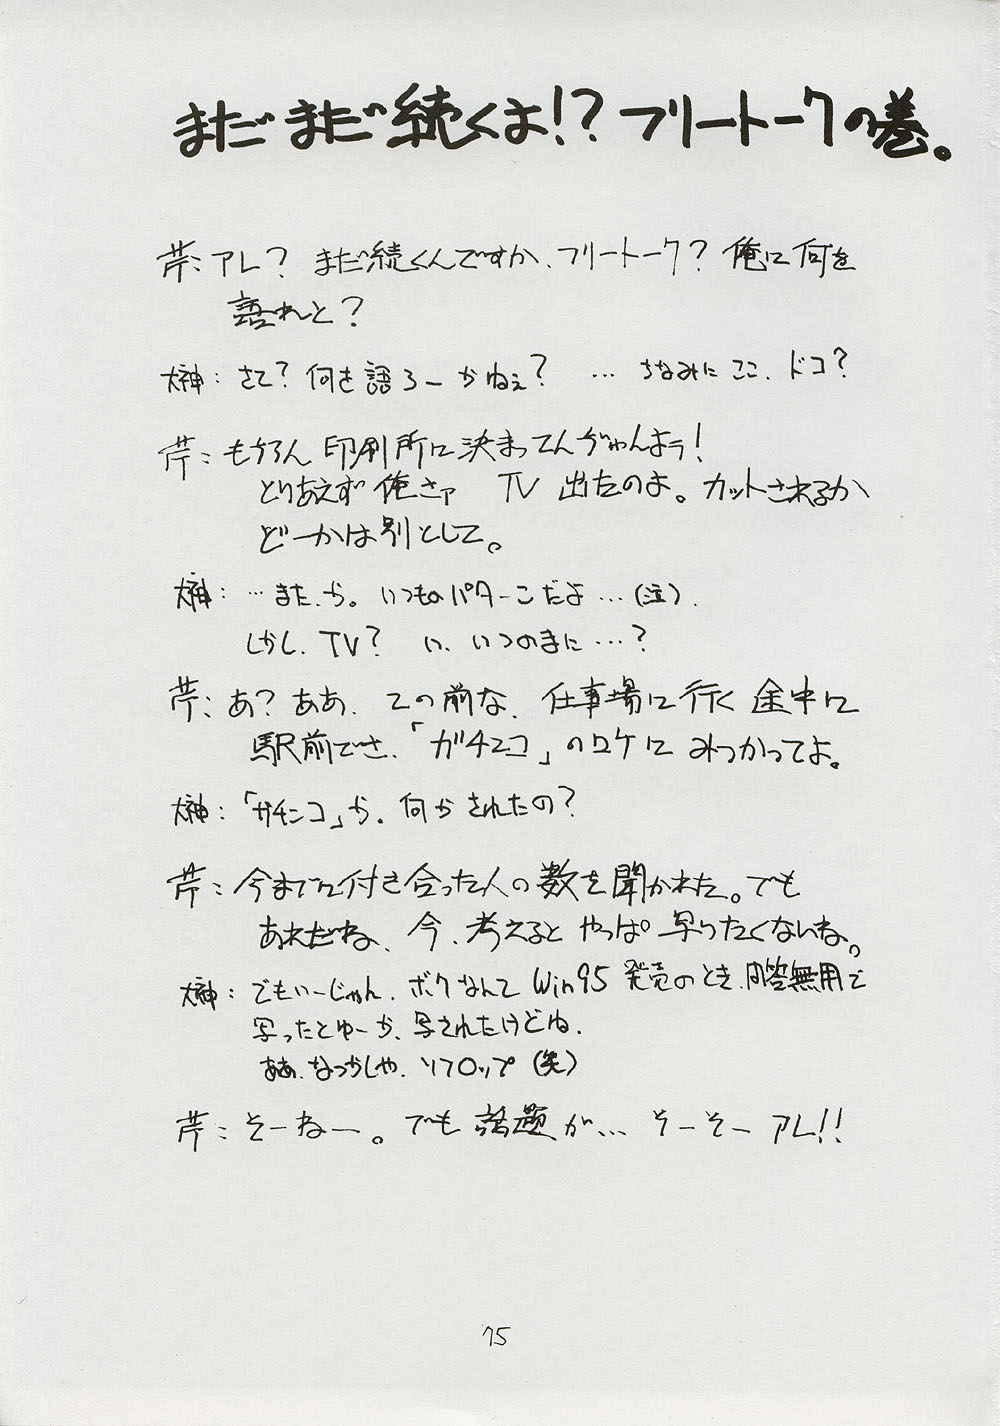 まだまだ続くよ!? フリートークの巻。
芹: アレ? まだ続くんですか、フリートーク? 俺に何を
語れと?
大神: さて? 何を語ろーかねぇ? … ちなみにここ、ドコ?
芹: もちろん印刷所に決まってんぢゃんよぅ!
とりあえず俺さァ TV 出たのよ。カットされるか
どーかは別として。
大神: …また、か。いつものパターンだよ…(泣)、
しかし、TV? い、いつのまに…?
芹: あ? ああ、この前な、仕事場に行く途中に
駅前でさ、「ガチンコ」のロケにみつかってよ。
大神: 「ガチンコ」か。何かされたの?
芹: 今までに付き合った人の数を聞かれた。でも
あれだね、今、考えるとやっぱ写りたくないね。
大神: でもいーじゃん、ボクなんてWin95発売のとき、問答無用で
写ったとゆーか、写されたけどね、
ああ、なつかしや、ソフロップ(笑)
芹: そーねー。でも話題が… そーそーアレ!!
75